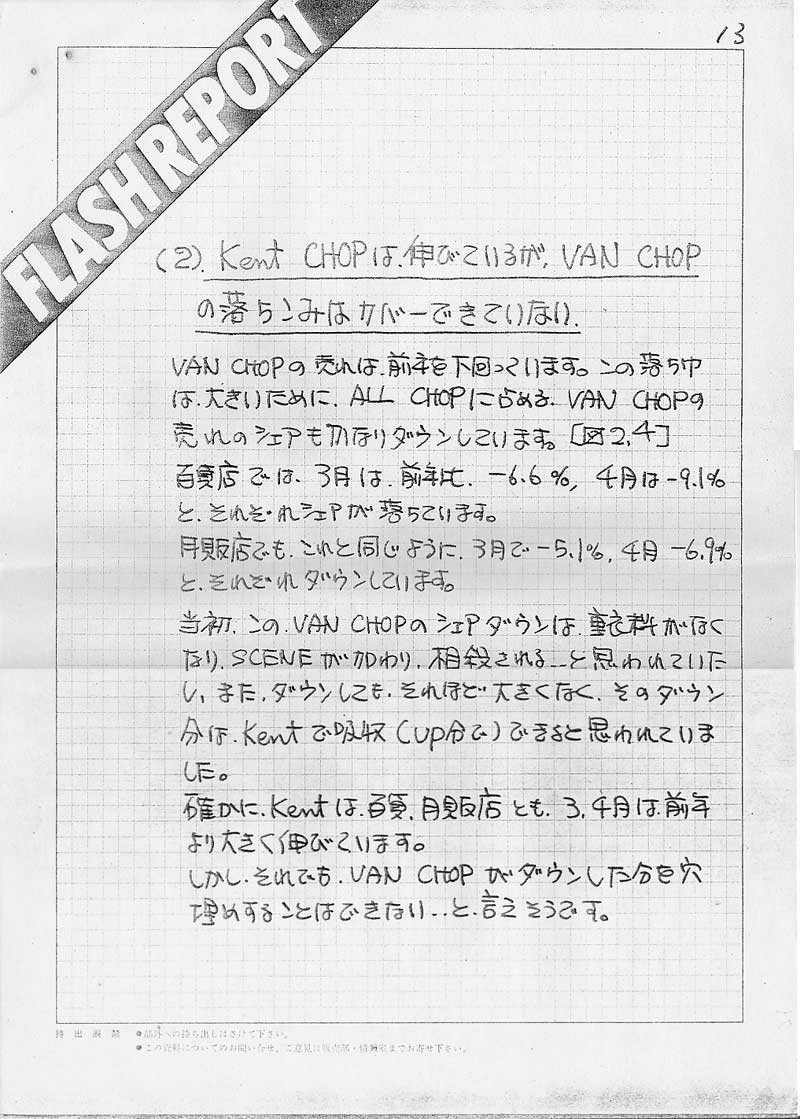 13
FLASH REPORT
(2). Kent CHOPは、伸びているが、VAN CHOP
の落ちこみはカバーできていない.
VAN CHOPの売れは、前年を下回っています。この落ち巾
は、大きいために、ALL CHOPに占める、VAN CHOPの
売れのシェアもかなりダウンしています。[図2,4]
百貨店では、3月は、前年比、-6.6%, 4月は-9.1%
と、それぞれシェアが落ちています。
月販店でも、これと同じように、3月で-5.1%, 4月-6.9%
と、それぞれダウンしています。
当初、この、VAN CHOPのシェアダウンは、重衣料がなく
なり、SCENEが加わり、相殺される…と思われていた
し、また、ダウンしても、それほど大きくなく、そのダウン
分は、Kentで吸収(up分で)できると思われていま
した。
確かに、Kentは、百貨、月販店とも、3,4月は、前年
より大きく伸びています。
しかし、それでも、VAN CHOPがダウンした分を穴
埋めすることはできない…と、言えそうです。
持出厳禁 ●部外への持ち出しはさけて下さい。
●この資料についてのお問い合せ、ご意見は販売部・情報室までお寄せ下さい。